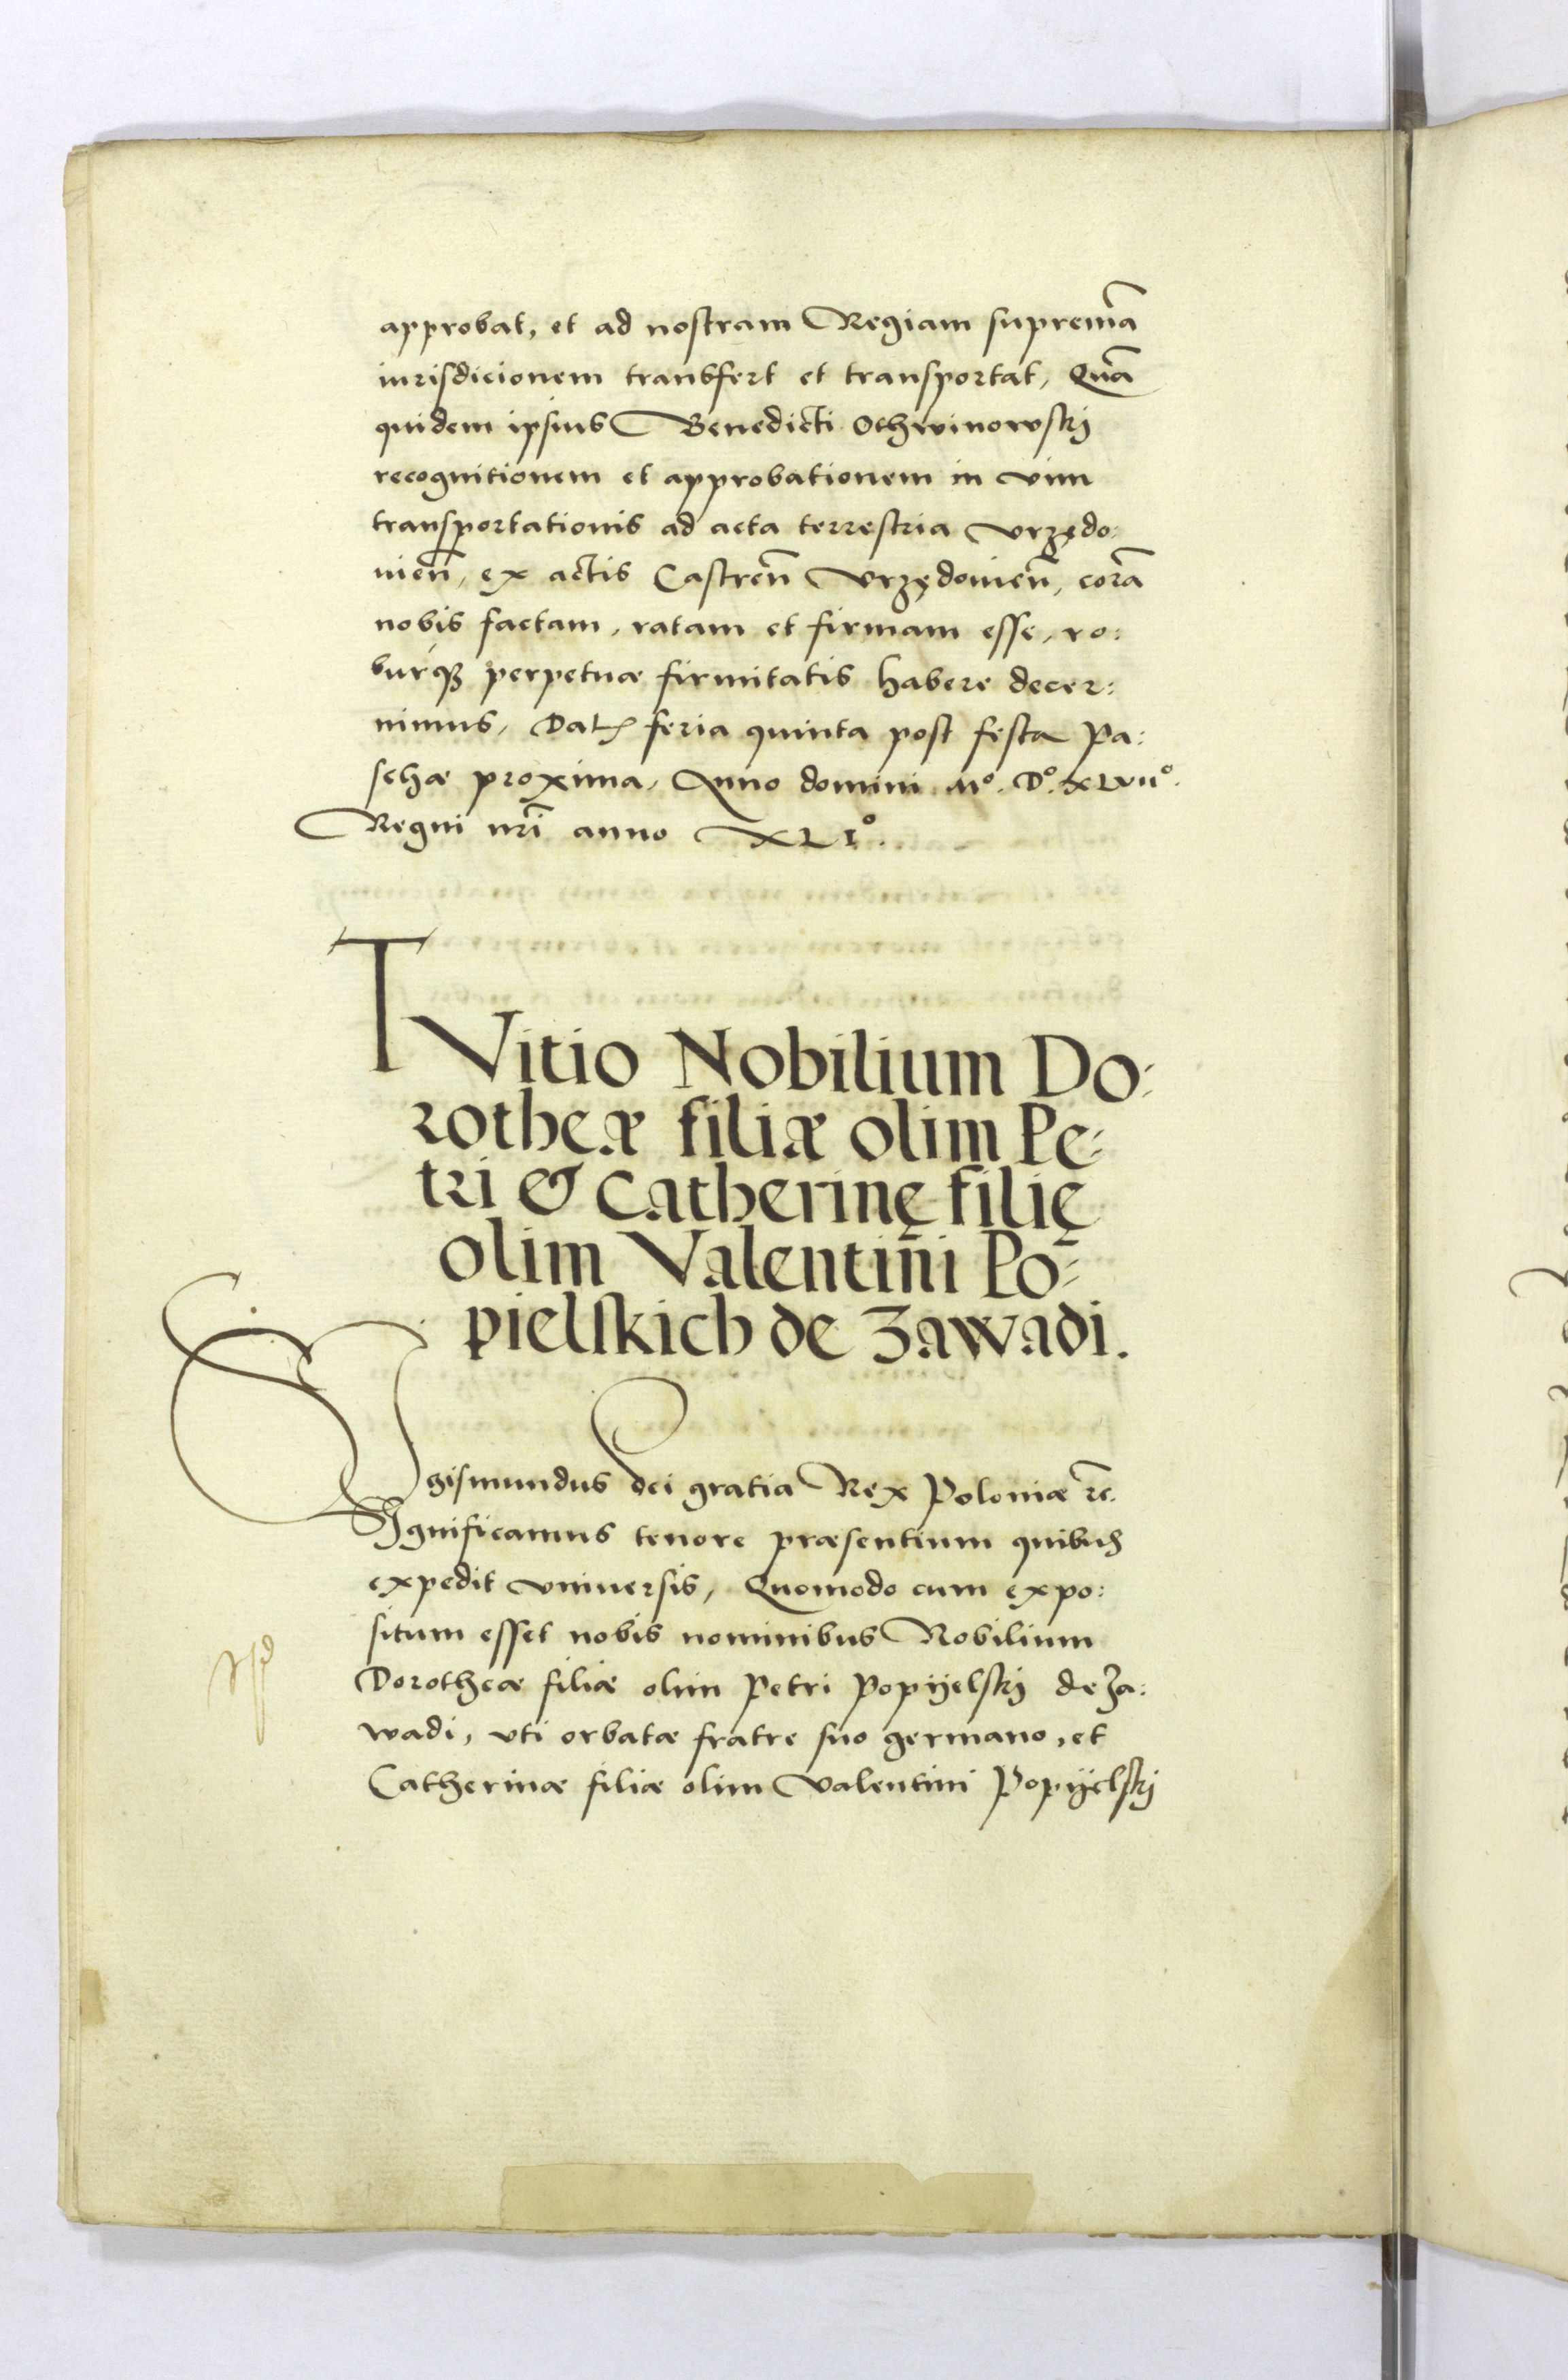 approbat, et ad nostram Regiam supremā
iurisdicionem transfert et transportat, Quā
quidem ipsius Benedicti Othwinowskij
recognitionem et approbationem in vim
transportationis ad acta terrestria Vrzędo:
nieñ, ex actis Castreñ Vrzędonieñ, corā
nobis factam, ratam et firmam esse, ro:
burq₃ perpetuæ firmitatis habere decer:
nimus, Dat feria quinta post festa Pa:
schæ proxima, Anno domini Mº. Dº. XLVIIº.
Regni nr̄i anno XLIº.
TVitio Nobilium Do:
rotheæ filiæ olim Pe:
tri & Catherinę filię
olim Valentini Po:
pielskich de Zawadi.
Sigismundus dei gratia Rex Poloniæ ꝛc.
Significamus tenore præsentium quibus
expedit vniuersis, Quomodo cum expo:
situm esset nobis nominibus Nobilium
Dorotheæ filiæ olim Petri Popijelskij de Za:
wadi, vti orbatæ fratre suo germano, et
Catherinæ filiæ olim Valentini Popijelskij